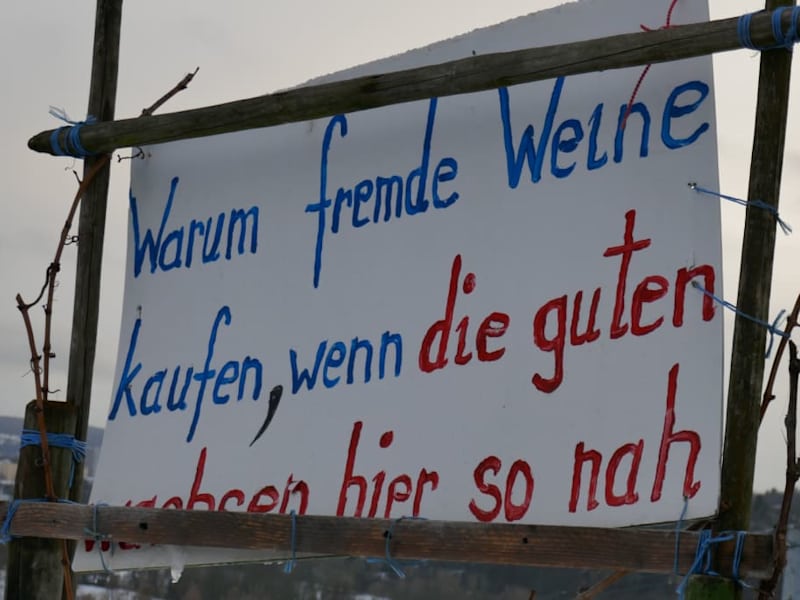 Warum fremde Weine
kaufen, wenn die guten
wachsen hier so nah